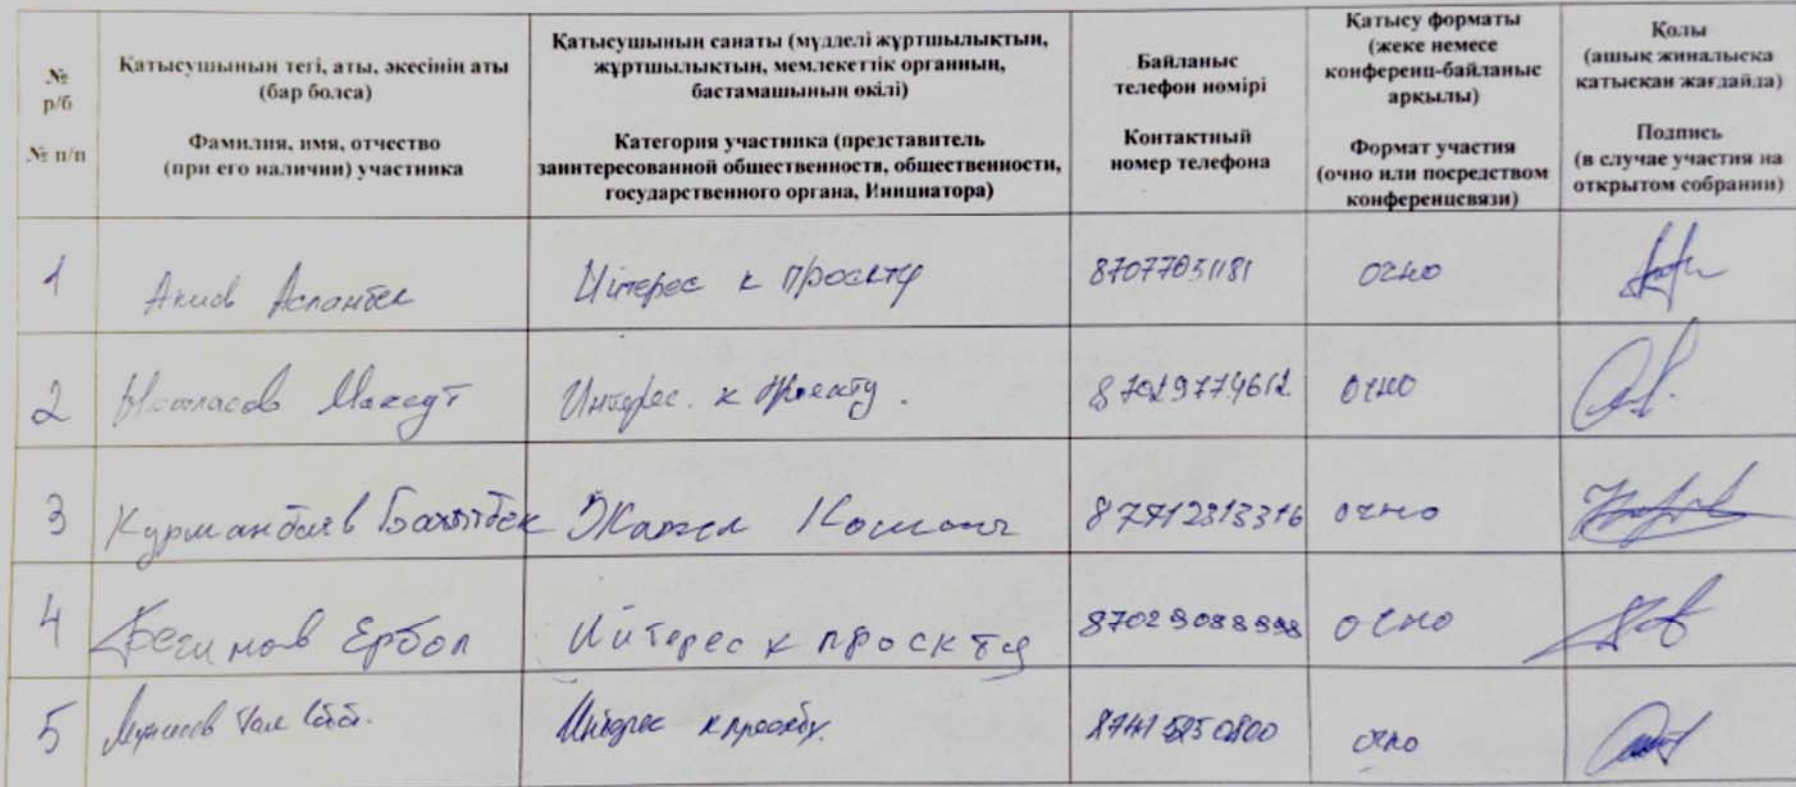 № р/б
№ п/п
Қатысушынын тегі, аты, әкесінің аты
(бар болса)
Фамилия, имя, отчество
(при его наличии) участника
Қатысушынын санаты (мүдделі жұртшылықтын,
жұртшылықтын, мемлекеттік органнын,
бастамашынын өкілі)
Категория участника (представитель
заинтересованной общественности, общественности,
государственного органа, Инициатора)
Байланыс
телефон нөмірі
Контактный
номер телефона
Қатысу форматы
(жеке немесе
конференц-байланыс
арқылы)
Формат участия
(очно или посредством
конференцсвязи)
Қолы
(ашық жиналысқа
қатысқан жағдайда)
Подпись
(в случае участия на
открытом собрании)
1 Акиев Асланбек Интерес к проекту 87077051181 очно
2 Максут Интерес к проекту. 87029774612 очно
3 Курманбаев Бахытбек 87712313316 очно
4 Ербол Интерес к проекту 87029088998 очно
5 Интерес к проекту. очно